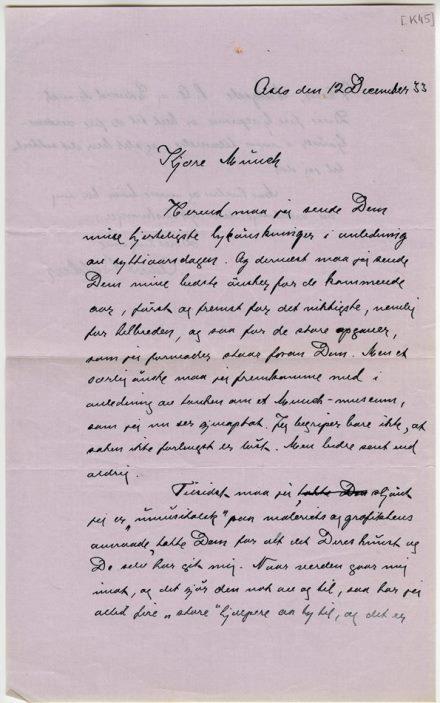 [K45]
Oslo den 12 December 33
Kjære Munch
Herved maa jeg sende Dem
mine hjerteligste lykønskninger i anledning
av syttiaarsdagen. Og dernæst maa jeg sende
Dem mine bedste ønsker for de kommende
aar, først og fremst for det viktigste, nemlig
for helbreden, og saa for de store opgaver,
som jeg formoder staar foran Dem. Men et
særlig ønske maa jeg fremkomme med i
anledning av tanken om et Munch-museum,
som jeg nu ser opnaptat. Jeg begriper bare ikke, at
saken ikke forlengst er løst. Men bedre sent end
aldrig.
Tilsidst maa jeg, takke Dem skjønt
jeg er „umusikalsk" paa maleriets og grafikkens
omraade, takke Dem for alt det Deres kunst og
De selv har git mig. Naar verden gaar mig
imot, og det gjør den nok av og til, saa har jeg
altid fire „store" hjælpere aa ty til, og det er